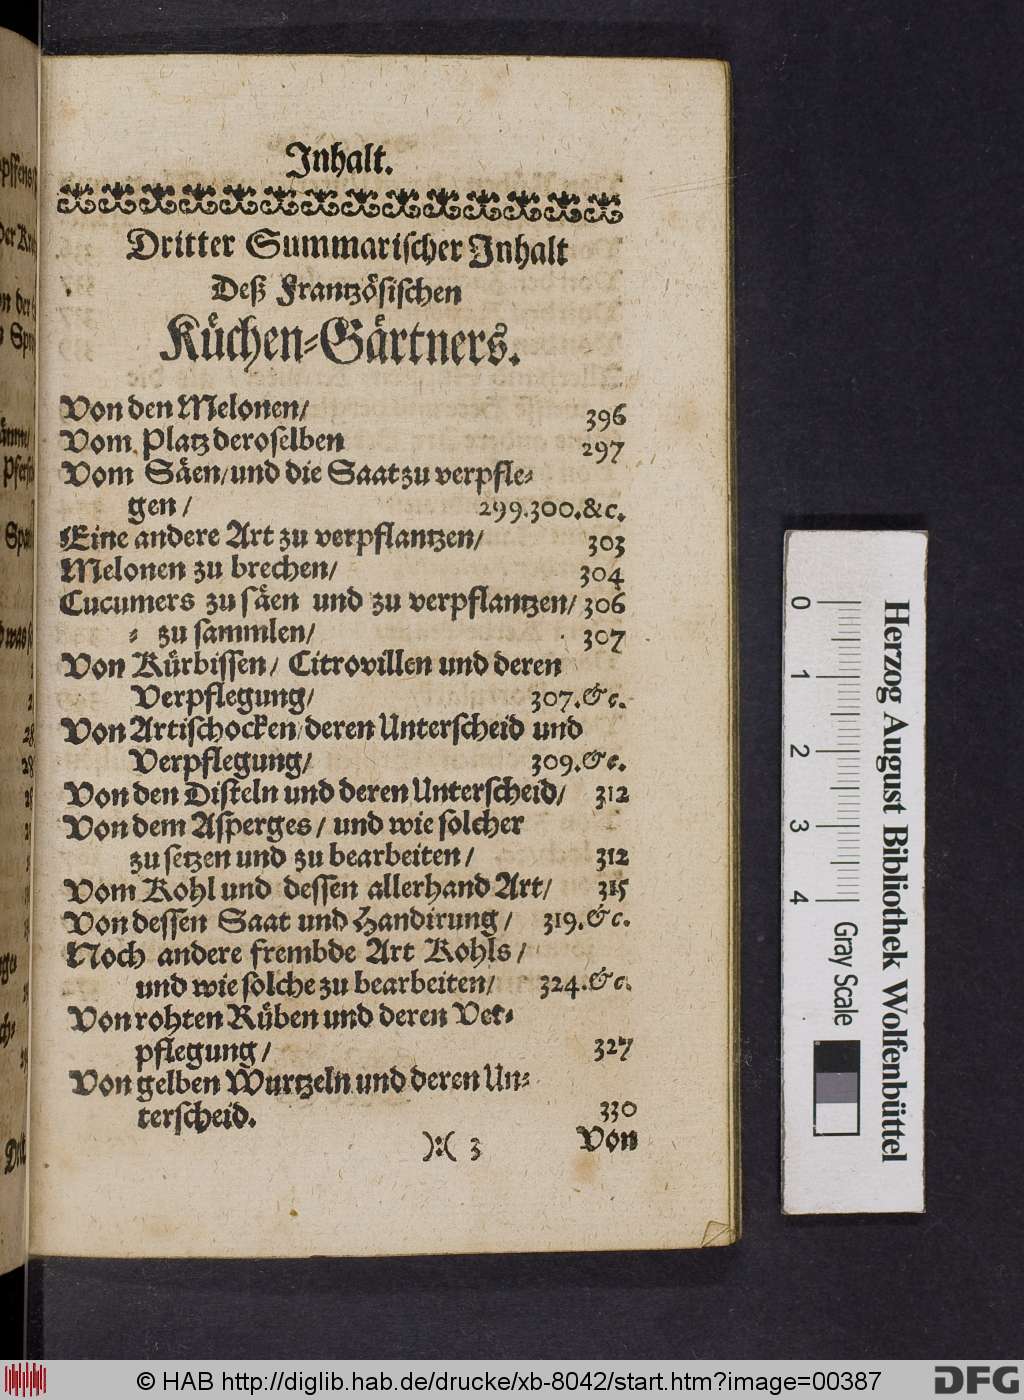 Inhalt.
Dritter Summarischer Inhalt
Deß Frantzösischen
Küchen-Gärtners.
Von den Melonen/ 396
Vom Platz deroselben 297
Vom Säen/und die Saat zu verpfle-
gen / 299.300.&c.
Eine andere Art zu verpflantzen/ 303
Melonen zu brechen/ 304
Cucumers zu säen und zu verpflantzen/ 306
- zu sammlen/ 307
Von Kürbissen/ Citrovillen und deren
Verpflegung/ 307.&c.
Von Artischocken/deren Unterscheid und
Verpflegung/ 309.&c.
Von den Disteln und deren Unterscheid/ 312
Von dem Asperges / und wie solcher
zu setzen und zu bearbeiten / 312
Vom Kohl und dessen allerhand Art/ 315
Von dessen Saat und Handirung / 319.&c.
Noch andere frembde Art Kohls /
und wie solche zu bearbeiten/ 324.&c.
Von rohten Rüben und deren Ver-
pflegung / 327
Von gelben Wurtzeln und deren Un-
terscheid. 330
):( 3 Von
0 1 2 3 4
Gray Scale
Herzog August Bibliothek Wolfenbüttel
© HAB http://diglib.hab.de/drucke/xb-8042/start.htm?image=00387
DFG